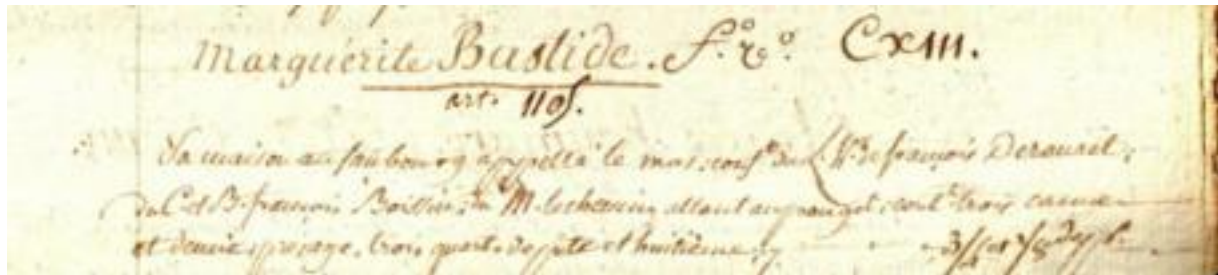 Marguérite Bastide. f.° r.° CXIII.
art. 1105.
Sa maison au faubourg appellé le mas, conf.te du L. h.rs de françois Deravail,
du C. et B. françois Boissin, du M. le chemin allant au cont.t trois canne
et demie, trois quart, de pite et huitieme